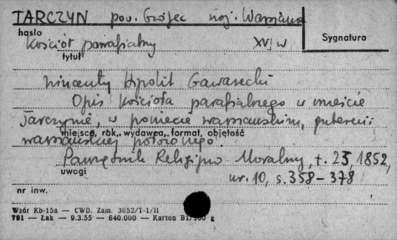 TARCZYN pow. Grójec woj. Warszawa
hasło
Kościół parafialny XV/w
Sygnatura
tytuł
Wincenty Hipolit Gawarecki
Opis kościoła parafialnego w mieście
Tarczynie, w powiecie warszawskim, gubernii
miejsce, rok, wydawca, format, objętość
warszawskiej położonego.
Pamiętnik Religijno-Moralny, t. 23, 1852,
uwagi
nr. 10, s. 358-378
nr inw.
Wzór Kb-15a — CWD. Zam. 3652/I-1/II
791 — Łak — 9.3.55 — 640.000 — Karton g